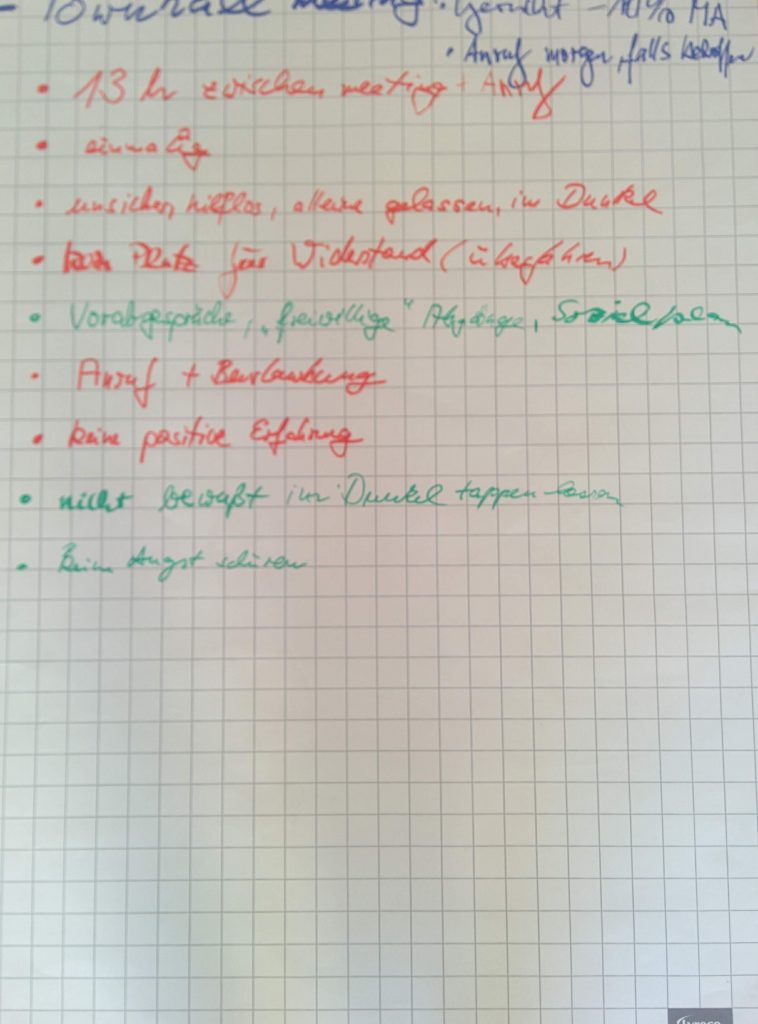 - Townhall meeting • Gerücht -10% MA
• Anruf morgen, falls betroffen
• 13 h zwischen meeting + Anruf
• einmalig
• unsicher, hilflos, alleine gelassen, im Dunkel
• kein Platz für Widerstand (überfahren)
• Vorabgespräche, "freiwillige" Abgänge, Sozialplan
• Anruf + Beurlaubung
• keine positive Erfahrung
• nicht bewußt im Dunkel tappen lassen
• keine Angst schüren